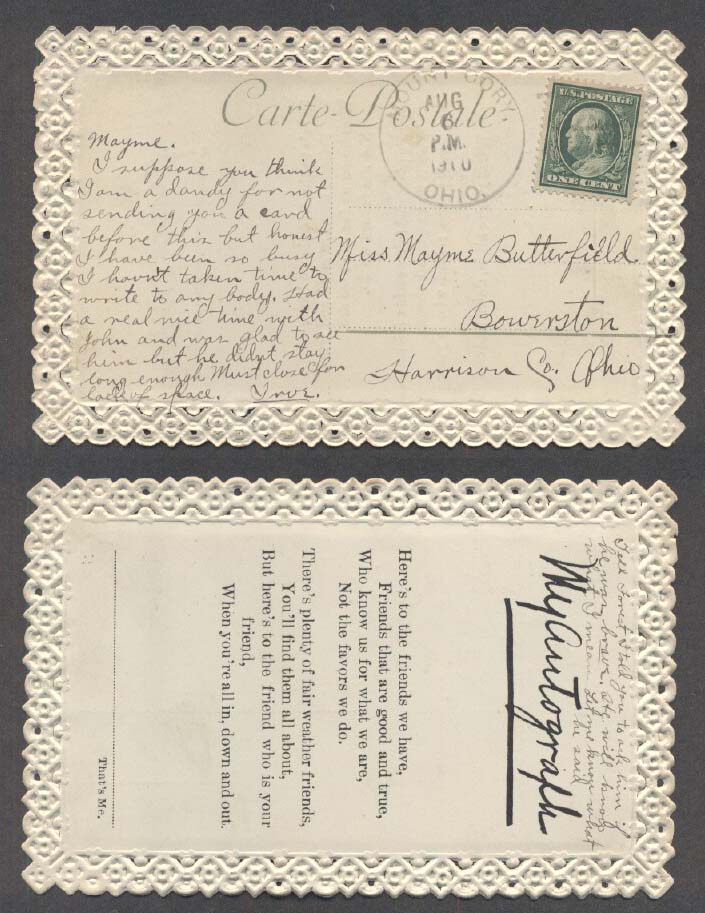 Carte-Postale
MOUNT CORY,
AUG
6
P.M.
1910
OHIO.
U.S. POSTAGE
ONE CENT
Mayme.
I suppose you think
I am a dandy for not
sending you a card
before this but honest
I have been so busy
I havn't taken time to
write to any body. Had
a real nice time with
John and was glad to see
him but he didnt stay
long enough Must close for
lack of space.
Miss Mayme Butterfield
Bowerston
Harrison Co. Ohio
Tell Forest I told you to ask him if
he was brave. He will know
what I mean. Let me know what
he said
My Autograph
Here's to the friends we have,
Friends that are good and true,
Who know us for what we are,
Not the favors we do.
There's plenty of fair weather friends,
You'll find them all about,
But here's to the friend who is your
friend,
When you're all in, down and out.
That's Me.